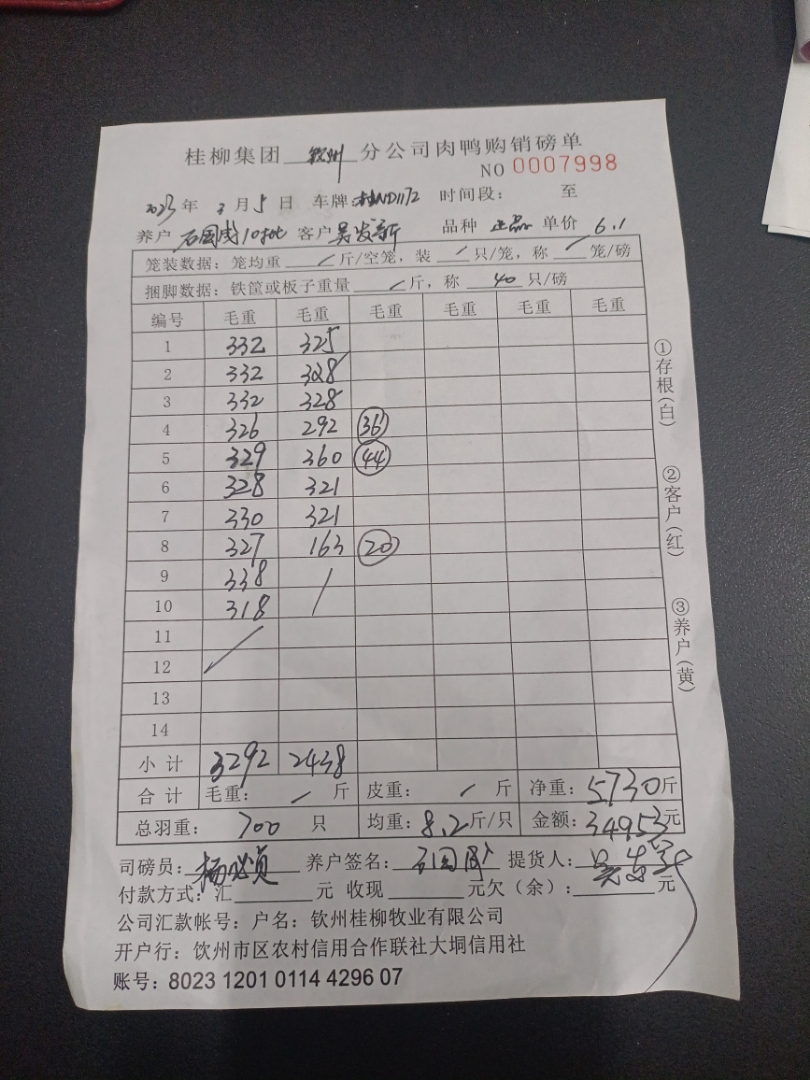 桂柳集团 钦州 分公司肉鸭购销磅单
NO 0007998
2023年 3月5日 车牌:桂ND1172 时间段: 至
养户 石国成10批 客户 吴发新 品种 正品 单价 6.1
笼装数据:笼均重 / 斤/空笼,装 / 只/笼,称 / 笼/磅
捆脚数据:铁筐或板子重量 / 斤,称 40 只/磅
编号 毛重 毛重 毛重 毛重 毛重 毛重
1 332 325
2 332 328
3 332 328
4 326 292 36
5 329 360 44
6 328 321
7 330 321
8 327 163 20
9 338 /
10 318
11 /
12
13
14
小计 3292 2438
合计 毛重: / 斤 皮重: / 斤 净重:5730斤
总羽重: 700 只 均重:8.2斤/只 金额:34953元
司磅员: 养户签名: 提货人:吴发新
付款方式:汇 元 收现 元欠(余): 元
公司汇款帐号:户名:钦州桂柳牧业有限公司
开户行:钦州市区农村信用合作联社大垌信用社
账号:8023 1201 0114 4296 07
①存根(白)
②客户(红)
③养户(黄)